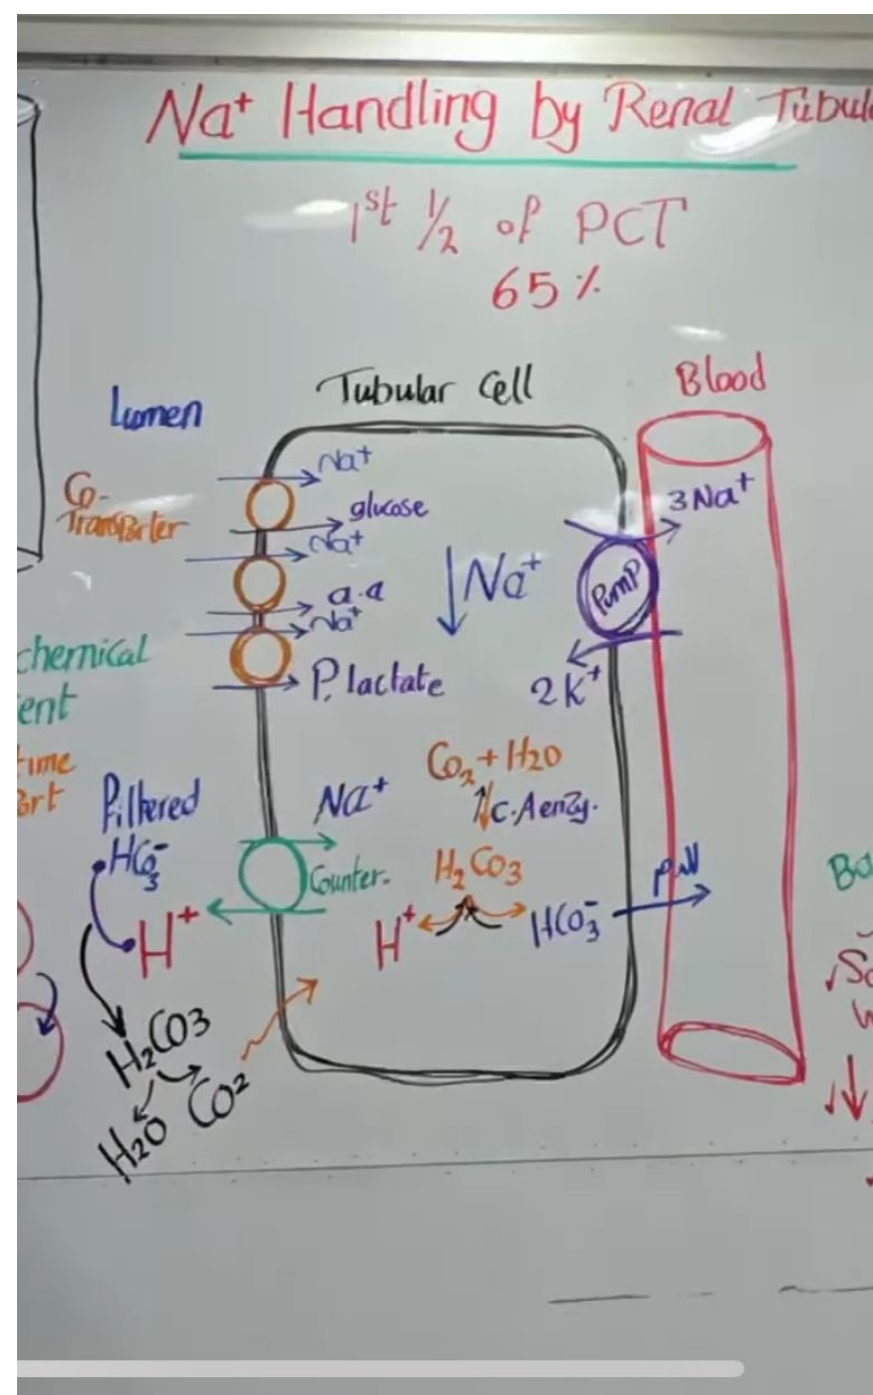 Na⁺ Handling by Renal Tubul
1st 1/2 of PCT
65 %
Lumen
Tubular Cell
Blood
Co-
Transporter
Na⁺
glucose
Na⁺
a.a
Na⁺
P. lactate
↓Na⁺
Pump
3Na⁺
2K⁺
chemical
ent
time
ort
Filtered
HCO₃⁻
H⁺
Na⁺
Counter-
CO₂ + H2O
C.A enzy.
H₂CO3
H⁺
HCO₃⁻
H₂CO3
H2O
CO₂